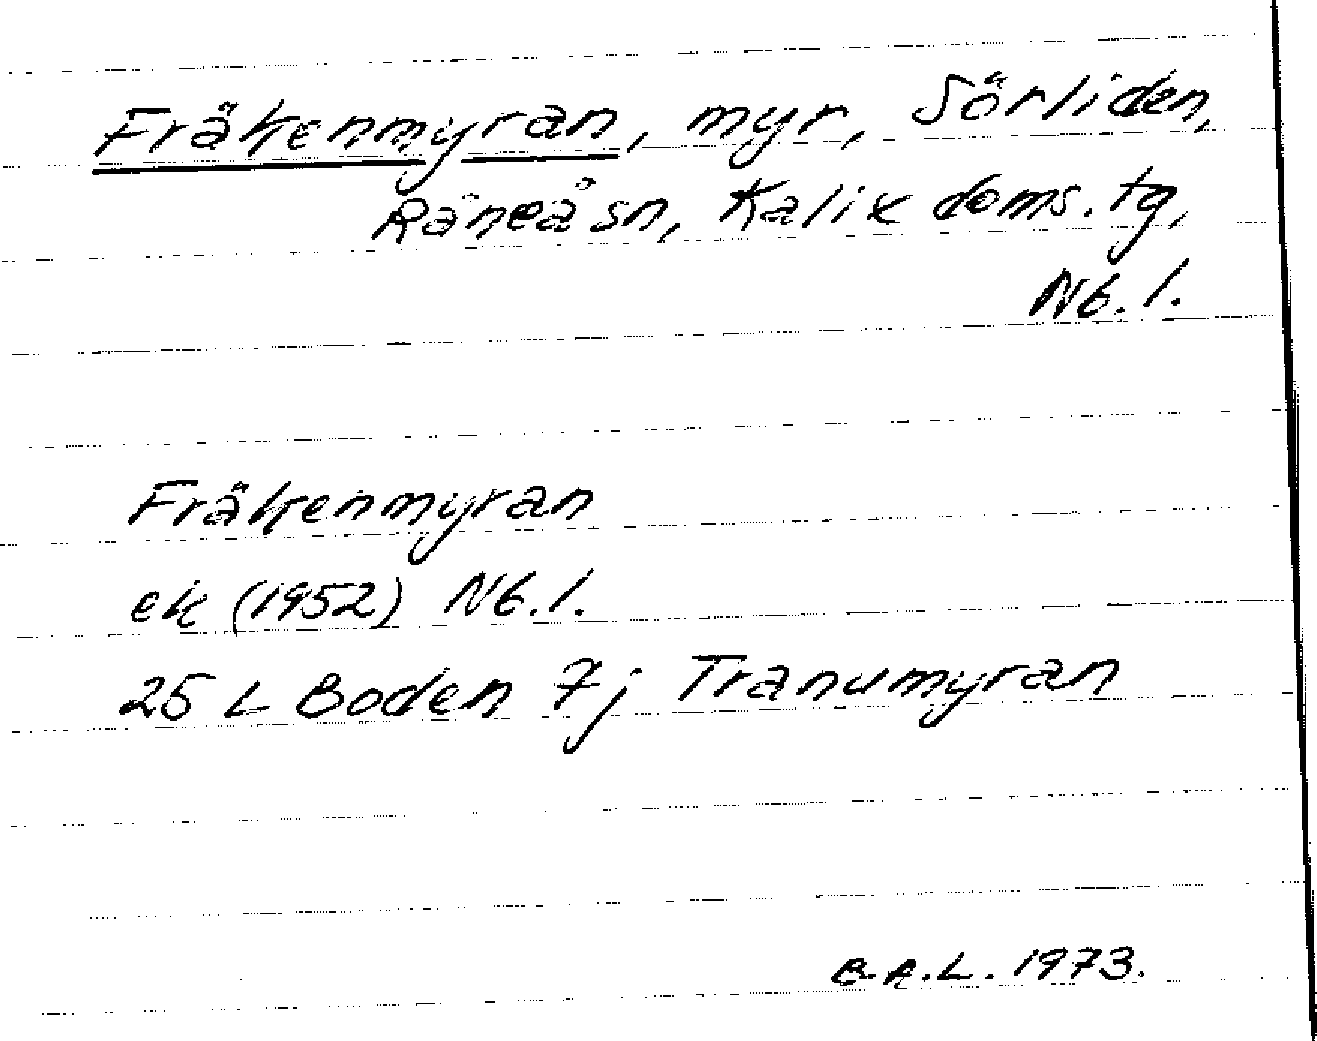 Fräkenmyran, myr, Sörliden,
Råneå sn, Kalix doms. tg,
Nb. l.
Fräkenmyran
ek (1952) Nb. l.
25 L Boden 7j Tranumyran
B.A.L. 1973.